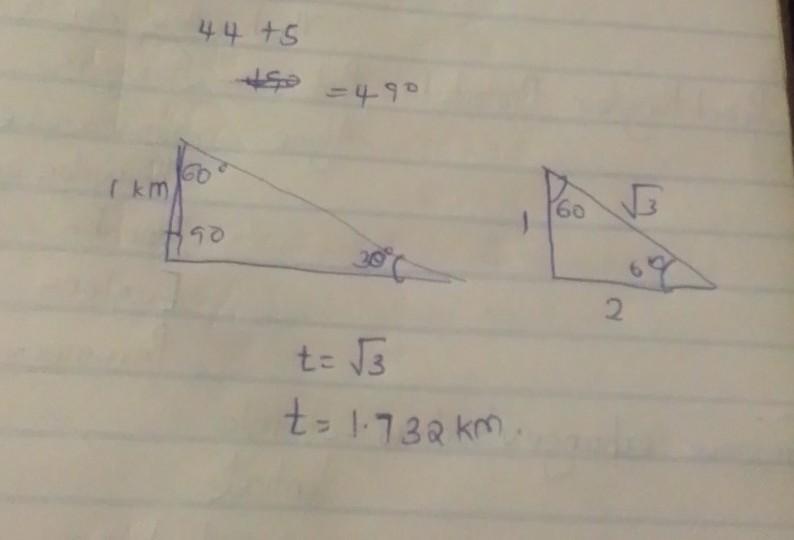 44 + 5
= 49°
1 km
60°
90
30°
1
60
√3
60
2
t = √3
t = 1.732 km.